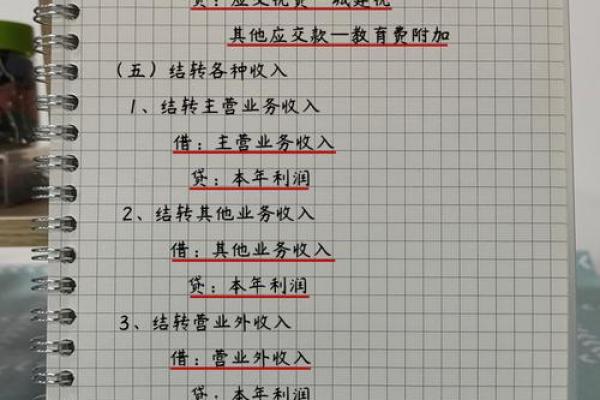 贷：应交税费—城建税
其他应交款—教育费附加
（五）结转各种收入
1、结转主营业务收入
借：主营业务收入
贷：本年利润
2、结转其他业务收入
借：其他业务收入
贷：本年利润
3、结转营业外收入
借：营业外收入
贷：本年利润